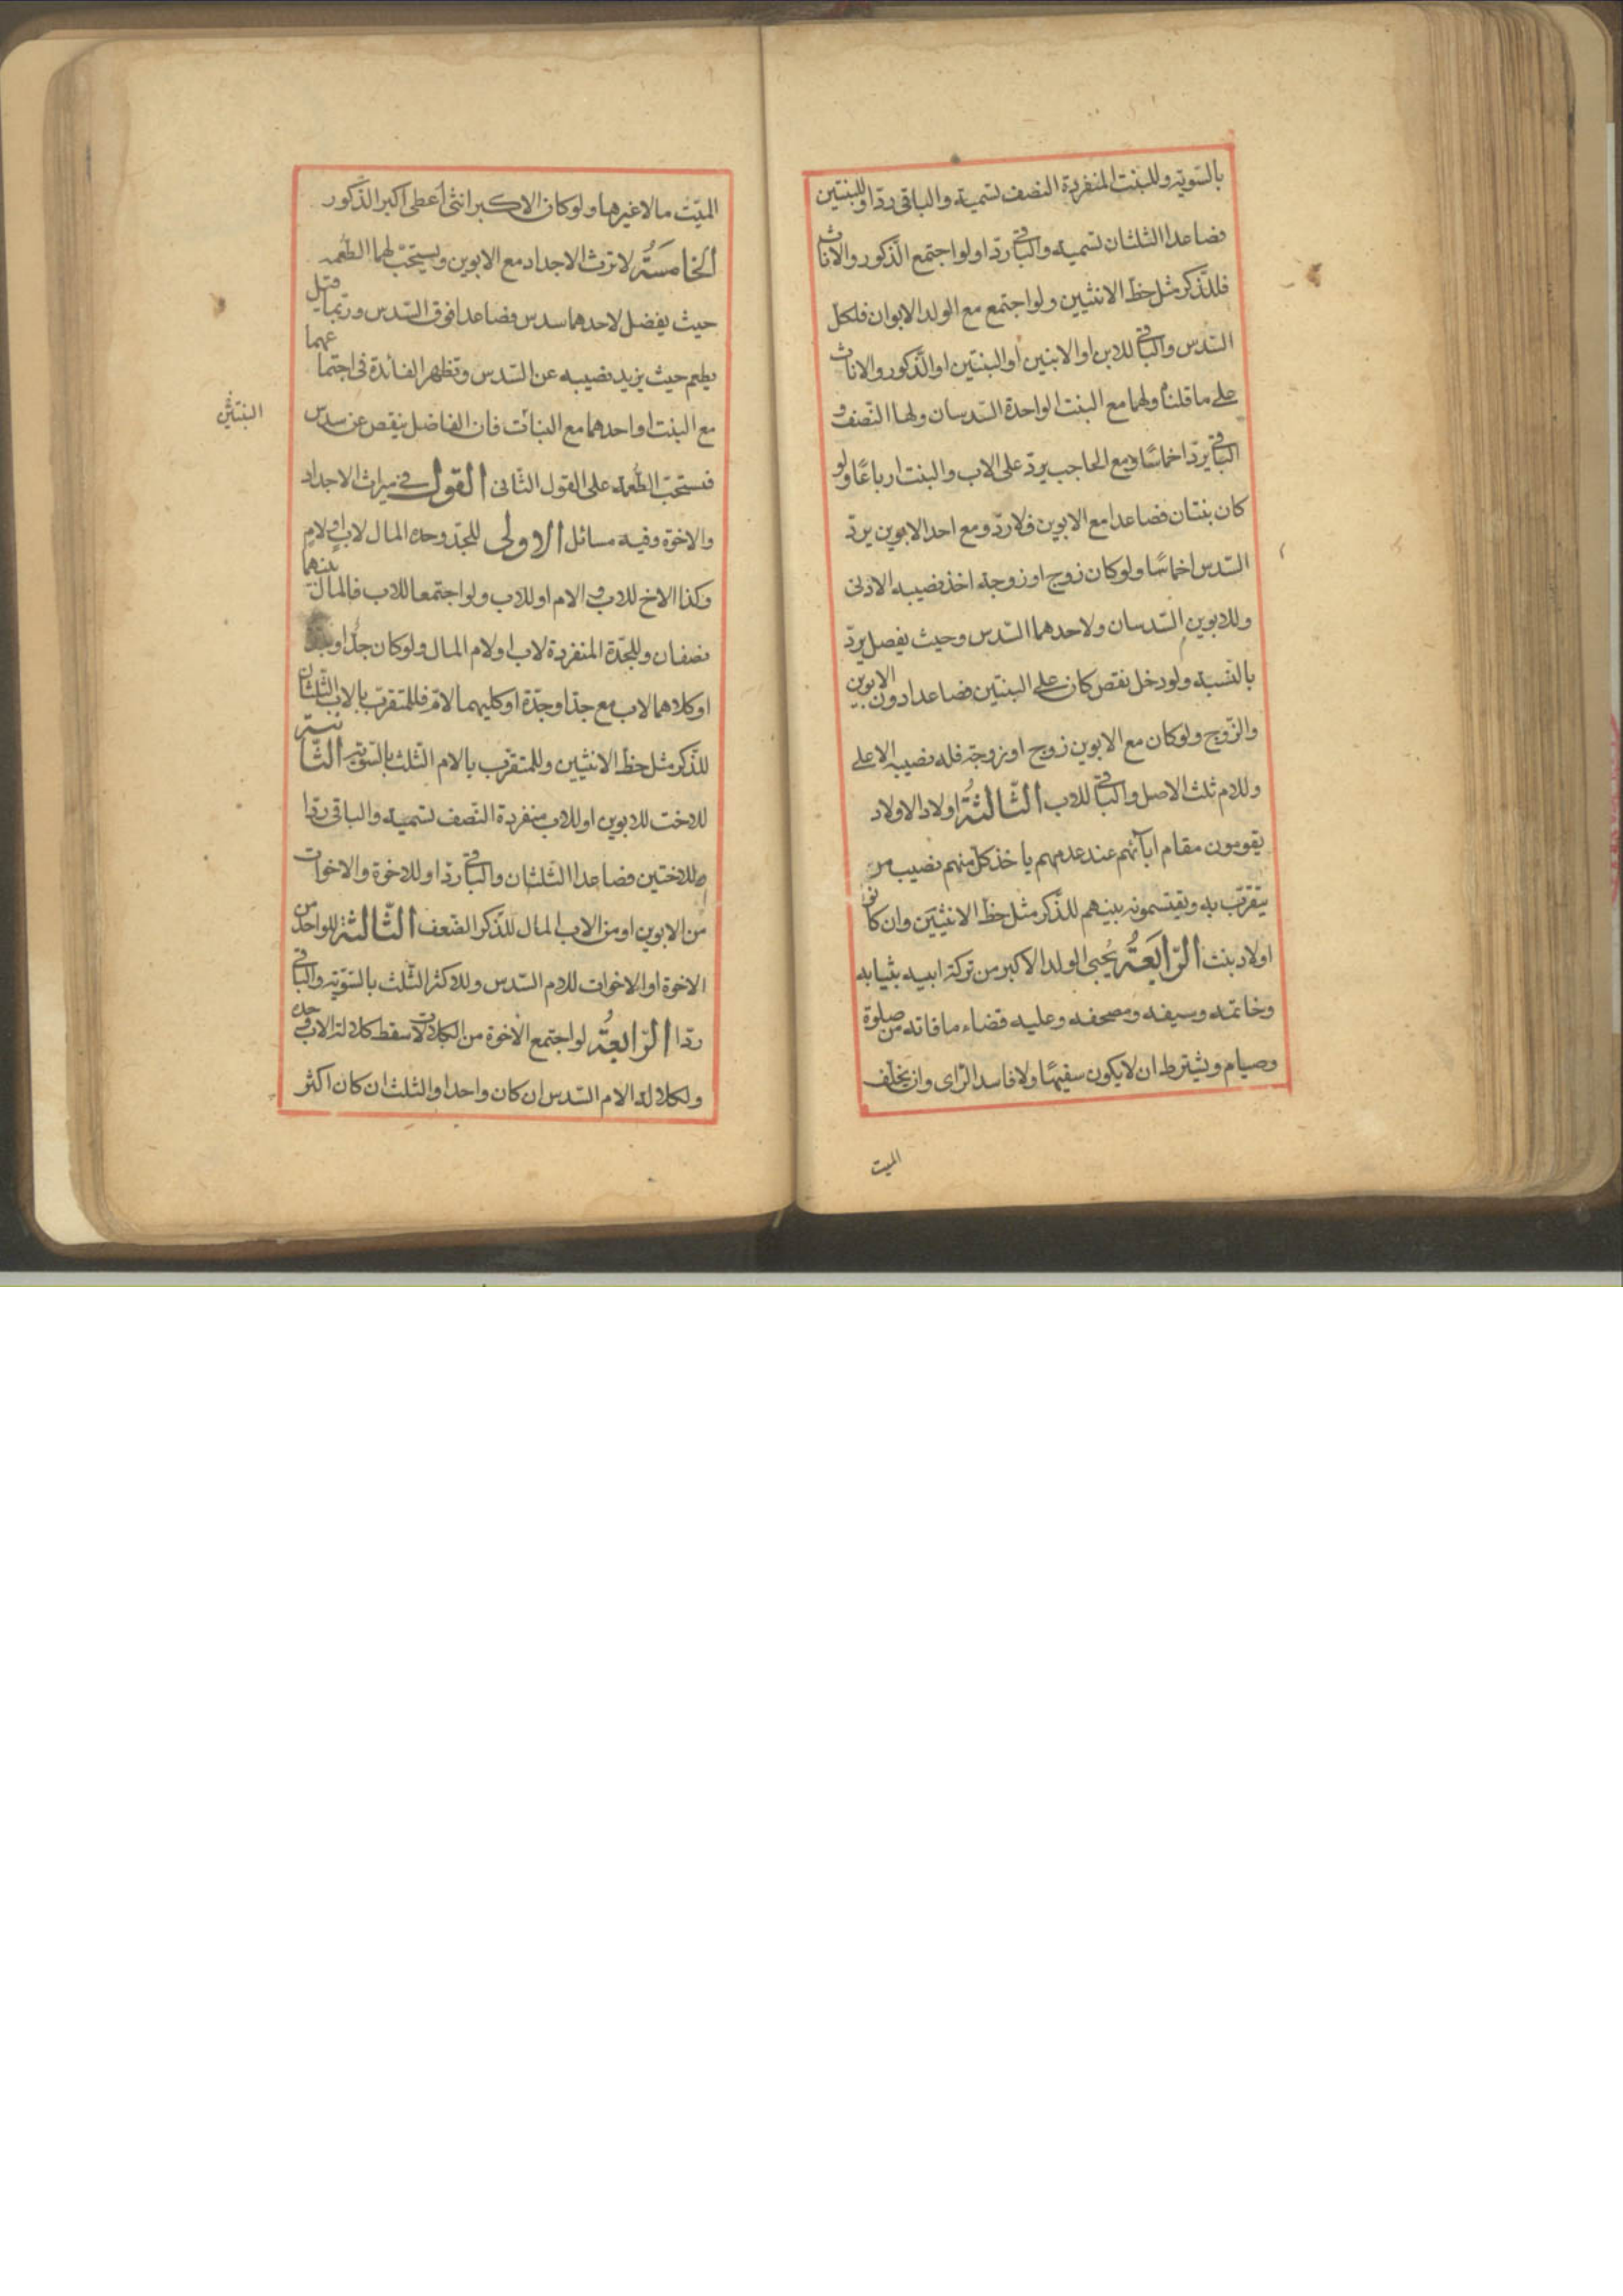 بالسّويّة وللبنت المنفردة النصف تسمية والباقى ردّا وللبنتين
فصاعدا الثلثان تسمية والباقى ردّا ولو اجتمع الذّكور والاناث
فللذّكر مثل حظّ الانثيين ولو اجتمع مع الولد الابوان فلكل
السّدس والباقى للابن او الابنين او البنتين او الذّكور والاناث
على ما قلناه ولهما مع البنت الواحدة السّدسان ولها النّصف و
الباقى يردّ اخماسًا ومع الحاجب يردّ على الاب والبنت ارباعًا ولو
كان بنتان فصاعدا مع الابوين فلا ردّ ومع احد الابوين يردّ
السّدس اخماسًا ولو كان زوج او زوجة اخذ نصيبه الادنى
وللابوين السّدسان ولاحدهما السّدس وحيث يفصل يردّ
بالنّسبة ولو دخل نقص كان على البنتين فصاعدا دون الابوين
والزّوج ولو كان مع الابوين زوج او زوجة فله نصيبه الاعلى
وللام ثلث الاصل والباقى للاب الثّالثةُ اولاد الاولاد
يقومون مقام آبائهم عند عدمهم ياخذ كلّ منهم نصيب من
يتقرّب به ويقتسمونه بينهم للذّكر مثل حظّ الانثيين وان كانوا
اولاد بنت الرّابعَةُ يُحبى الولد الاكبر من تركة ابيه بثيابه
وخاتمه وسيفه ومصحفه وعليه قضاء ما فاته من صلوة
وصيام ويشترط ان لا يكون سفيهًا ولا فاسد الرّاى وان يخلّف
الميت
الميّت مالا غيرها ولو كان الاكبر انثى أعطى اكبر الذّكور
الخامسَةُ لا ترث الاجداد مع الابوين ويستحبّ لهما الطّعمه
حيث يفضل لاحدهما سدس فصاعدا فوق السّدس وربّما قيل
يطعم حيث يزيد نصيبه عن السّدس وتظهر الفائدة فى اجتماعهما
مع البنت او احدهما مع البنات فان الفاضل ينقص عن سدس
البنتين
فستحبّ الطّعمة على القول الثّانى القول فى ميراث الاجداد
والاخوة وفيه مسائل الاولى للجدّ وحده المال لاب او لام
وكذا الاخ للاب والام او للاب ولو اجتمعا للاب فالمال بينهما
نصفان وللجدّة المنفردة لاب او لام المال ولو كان جدّا او
او كلاهما لاب مع جدّ او جدّة او كليهما لامّ فللمتقرّب بالاب الثلثان
للذّكر مثل حظّ الانثيين وللمتقرّب بالام الثّلث بالسّويّة الثّانية
للاخت للابوين او للاب منفردة النّصف تسمية والباقى ردّا
وللاختين فصاعدا الثلثان والباقى ردّا وللاخوة والاخوات
من الابوين او من الاب المال للذّكر الضّعف الثّالثة للواحد من
الاخوة او الاخوات للام السّدس وللاكثر الثّلث بالسّويّة والباقى
ردّا الرّابعةُ لو اجتمع الاخوة من الكلالات سقط كلالة الاب وحده
ولكلالة الام السّدس ان كان واحدا والثلث ان كان اكثر